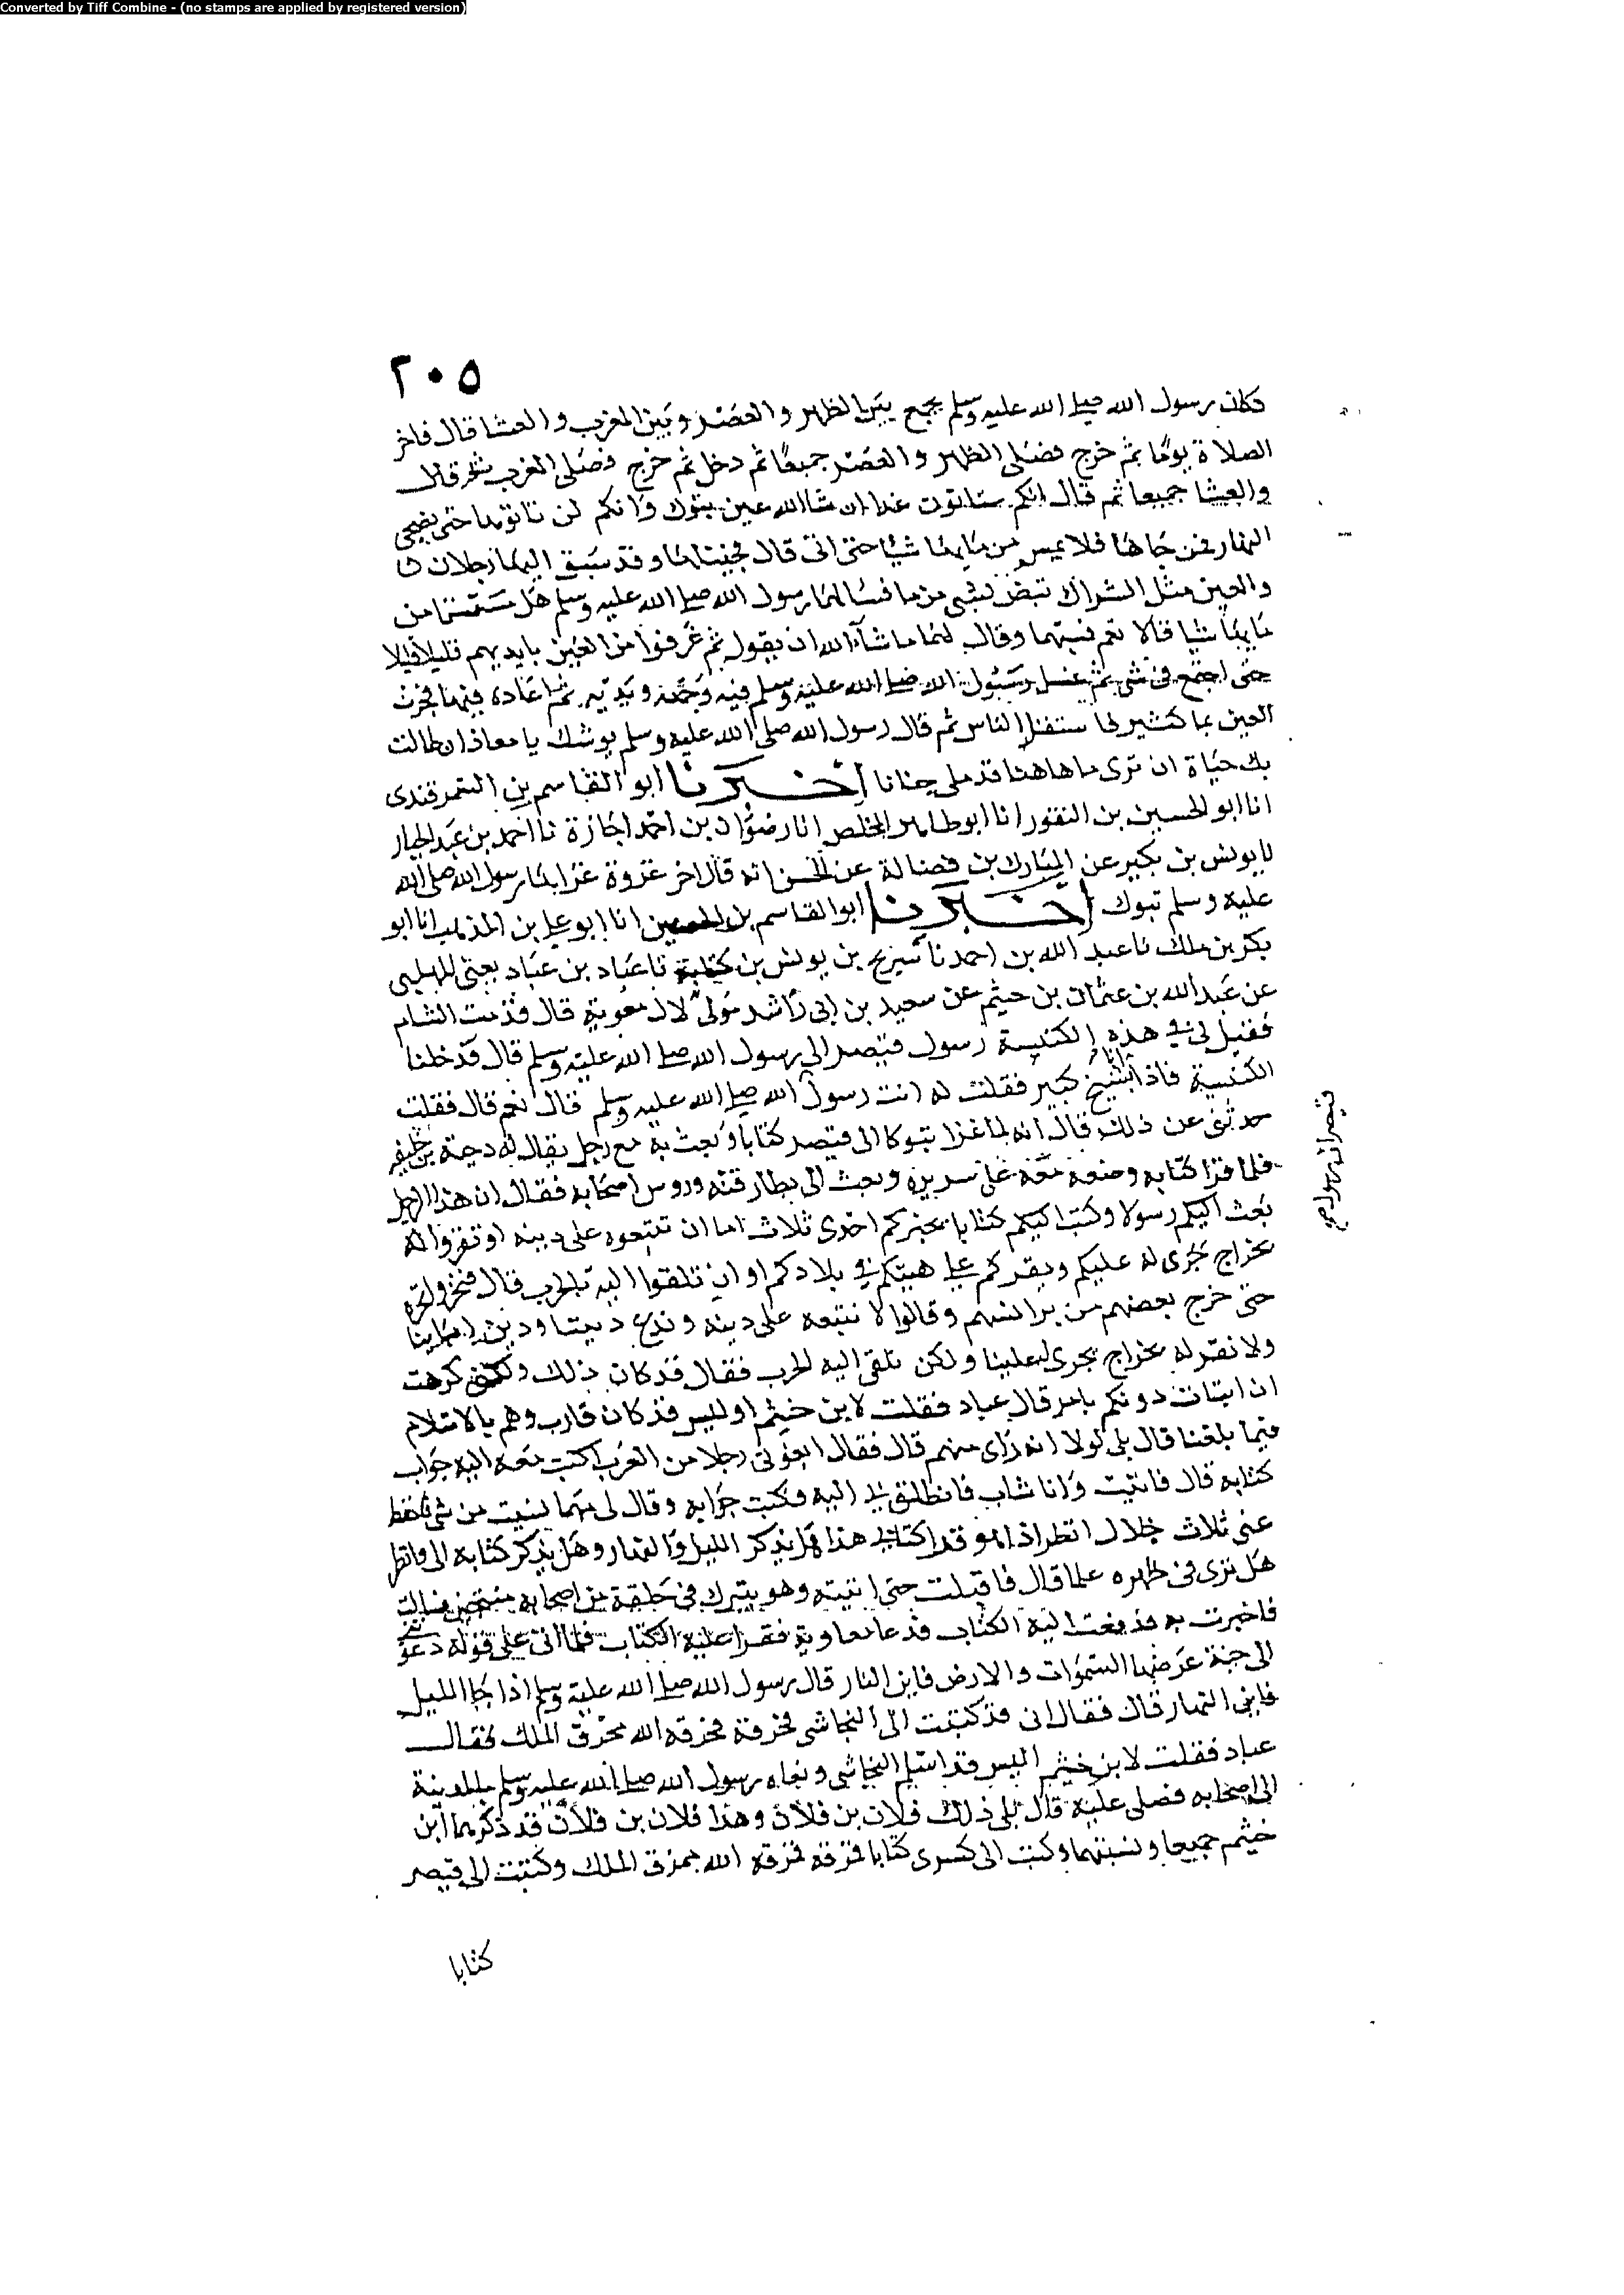 Converted by Tiff Combine - (no stamps are applied by registered version)
٢٠٥
فكان رسول الله صلى الله عليه وسلم يجمع بين الظهر والعصر وبين المغرب والعشا قال فاخر
الصلاة يوما ثم خرج فصلى الظهر والعصر جميعا ثم دخل ثم خرج فصلى المغرب
والعشا جميعا ثم قال انكم ستاتون غدا ان شا الله عين تبوك وانكم لن تاتوها حتى يضحى
النهار فمن جاها فلا يمس من مايها شيا حتى اتى قال فجيناها وقد سبق اليها رجلان
والعين مثل الشراك تبض بشى من ما فسالهما رسول الله صلى الله عليه وسلم هل مسستما من
مايها شيا قالا نعم فسبهما وقال لهما ما شاء الله ان يقول ثم غرفوا من العين بايديهم قليلا قليلا
حتى اجتمع فى شى ثم غسل رسول الله صلى الله عليه وسلم فيه وجهه ويديه ثم اعاده فيها فجرت
العين بما كثير فاستقى الناس ثم قال رسول الله صلى الله عليه وسلم يوشك يا معاذ ان طالت
بك حياة ان ترى ما هاهنا قد ملى جنانا اخبرنا ابو القاسم بن السمرقندى
انا ابو الحسين بن النقور انا ابو طاهر المخلص انا رضوان بن احمد اجازة نا احمد بن عبد الجبار
نا يونس بن بكير عن المبارك بن فضالة عن الحسن انه قال اخر غزوة غزاها رسول الله صلى الله
عليه وسلم تبوك اخبرنا ابو القاسم بن الحصين انا ابو على بن المذهب انا ابو
بكر بن ملك نا عبد الله بن احمد نا سريج بن يونس بن نا عباد بن عباد يعنى المهلبى
عن عبد الله بن عثمان بن خيثم عن سعيد بن ابى راشد مولى لال معوية قال قدمت الشام
فقيل لى فى هذه الكنيسة رسول قيصر الى رسول الله صلى الله عليه وسلم قال فدخلنا
الكنيسة فاذا انا بشيخ كبير فقلت له انت رسول الله صلى الله عليه وسلم قال نعم قال فقلت
حدثنى عن ذلك قال انه لما غزا تبوكا الى قيصر كتابا وبعث به مع رجل يقال له دحية بن خليفة
فلما قرا كتابه وضعه معه على سريره وبعث الى بطارقته وروس اصحابه فقال ان هذا الرجل
بعث اليكم رسولا وكتب اليكم كتابا يخبركم احدى ثلاث اما ان تتبعوه على دينه او تقروا له
بخراج يجرى له عليكم ويقركم على هيتكم فى بلادكم او ان تلقوا اليه بالحرب قال فنخروا نخرة
حتى خرج بعضهم من برانسهم وقالوا لا نتبعه على دينه وندع ديننا ودين ابائنا
ولا نقر له بخراج يجرى له علينا ولكن نلقى اليه الحرب فقال قد كان ذلك ولكنى كرهت
ان افتات دونكم بامر قال عباد فقلت لابن خيثم اوليس قد كان قارب وهم بالاسلام
فيما بلغنا قال بلى لولا انه راى منهم قال فقال ابغونى رجلا من العرب اكتب معه اليه جواب
كتابه قال فاتيت وانا شاب فانطلق بى اليه فكتب جوابه وقال لى مهما نسيت من شى فاحفظ
عنى ثلاث خلال انظر اذا هو قرا كتابى هذا هل يذكر الليل والنهار وهل يذكر كتابه الى وانظر
هل ترى فى ظهره علما قال فاقبلت حتى اتيته وهو بتبوك فى حلقة من اصحابه منتجين فسالت
فاخبرت به فدفعت اليه الكتاب فدعا معاوية فقرا عليه الكتاب فلما اتى على قوله دعوتنى
الى جنة عرضها السموات والارض فاين النار قال رسول الله صلى الله عليه وسلم اذا جا الليل
فاين النهار قال فقال انى قد كتبت الى النجاشى فخرقه فخرقه الله مخرق الملك فقال
عباد فقلت لابن خيثم اليس قد اسلم النجاشى ونعاه رسول الله صلى الله عليه وسلم بالمدينة
الى اصحابه فصلى عليه قال بلى ذلك فلان بن فلان وهذا فلان بن فلان قد ذكرهما ابن
خيثم جميعا ونسيتهما وكتبت الى كسرى كتابا فمزقه فمزقه الله بمزق الملك وكتبت الى قيصر
كتابا